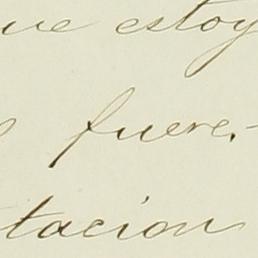 ue estoy
fuere.-
tacion